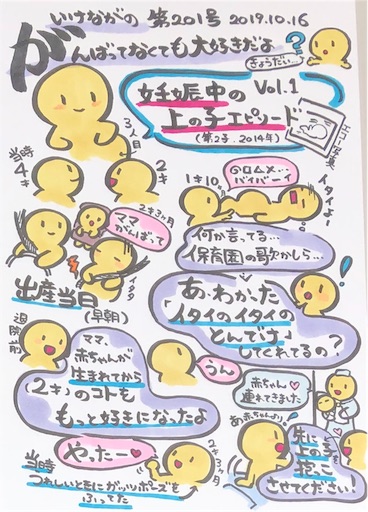 いけながの 第201号 2019.10.16
がんばってなくても大好きだよ
きょうだい…?
妊娠中の Vol.1
上の子エピソード
(第2子.2014年)
エコー写真
3人目
当時
4才
2才
1才10ヶ月
○ロ△メ…
バイバーイ
イタイよー
2才3ヶ月
ママ
がんばって
イタタ
何か言ってる…
保育園の歌かしら…
出産当日
(早朝)
あ、わかった
「イタイのイタイの
とんでけ」
してくれてるの?
退院前
ママ、
赤ちゃんが
生まれてから
(2才)のコトも
もっと好きになったよ
うん
赤ちゃん
連れてきました
あ、赤ちゃんより
先に
上の子を
抱っこ
させてください!
やったー
2才3ヶ月
当時
うれしいときにガッツポーズを
ふってた